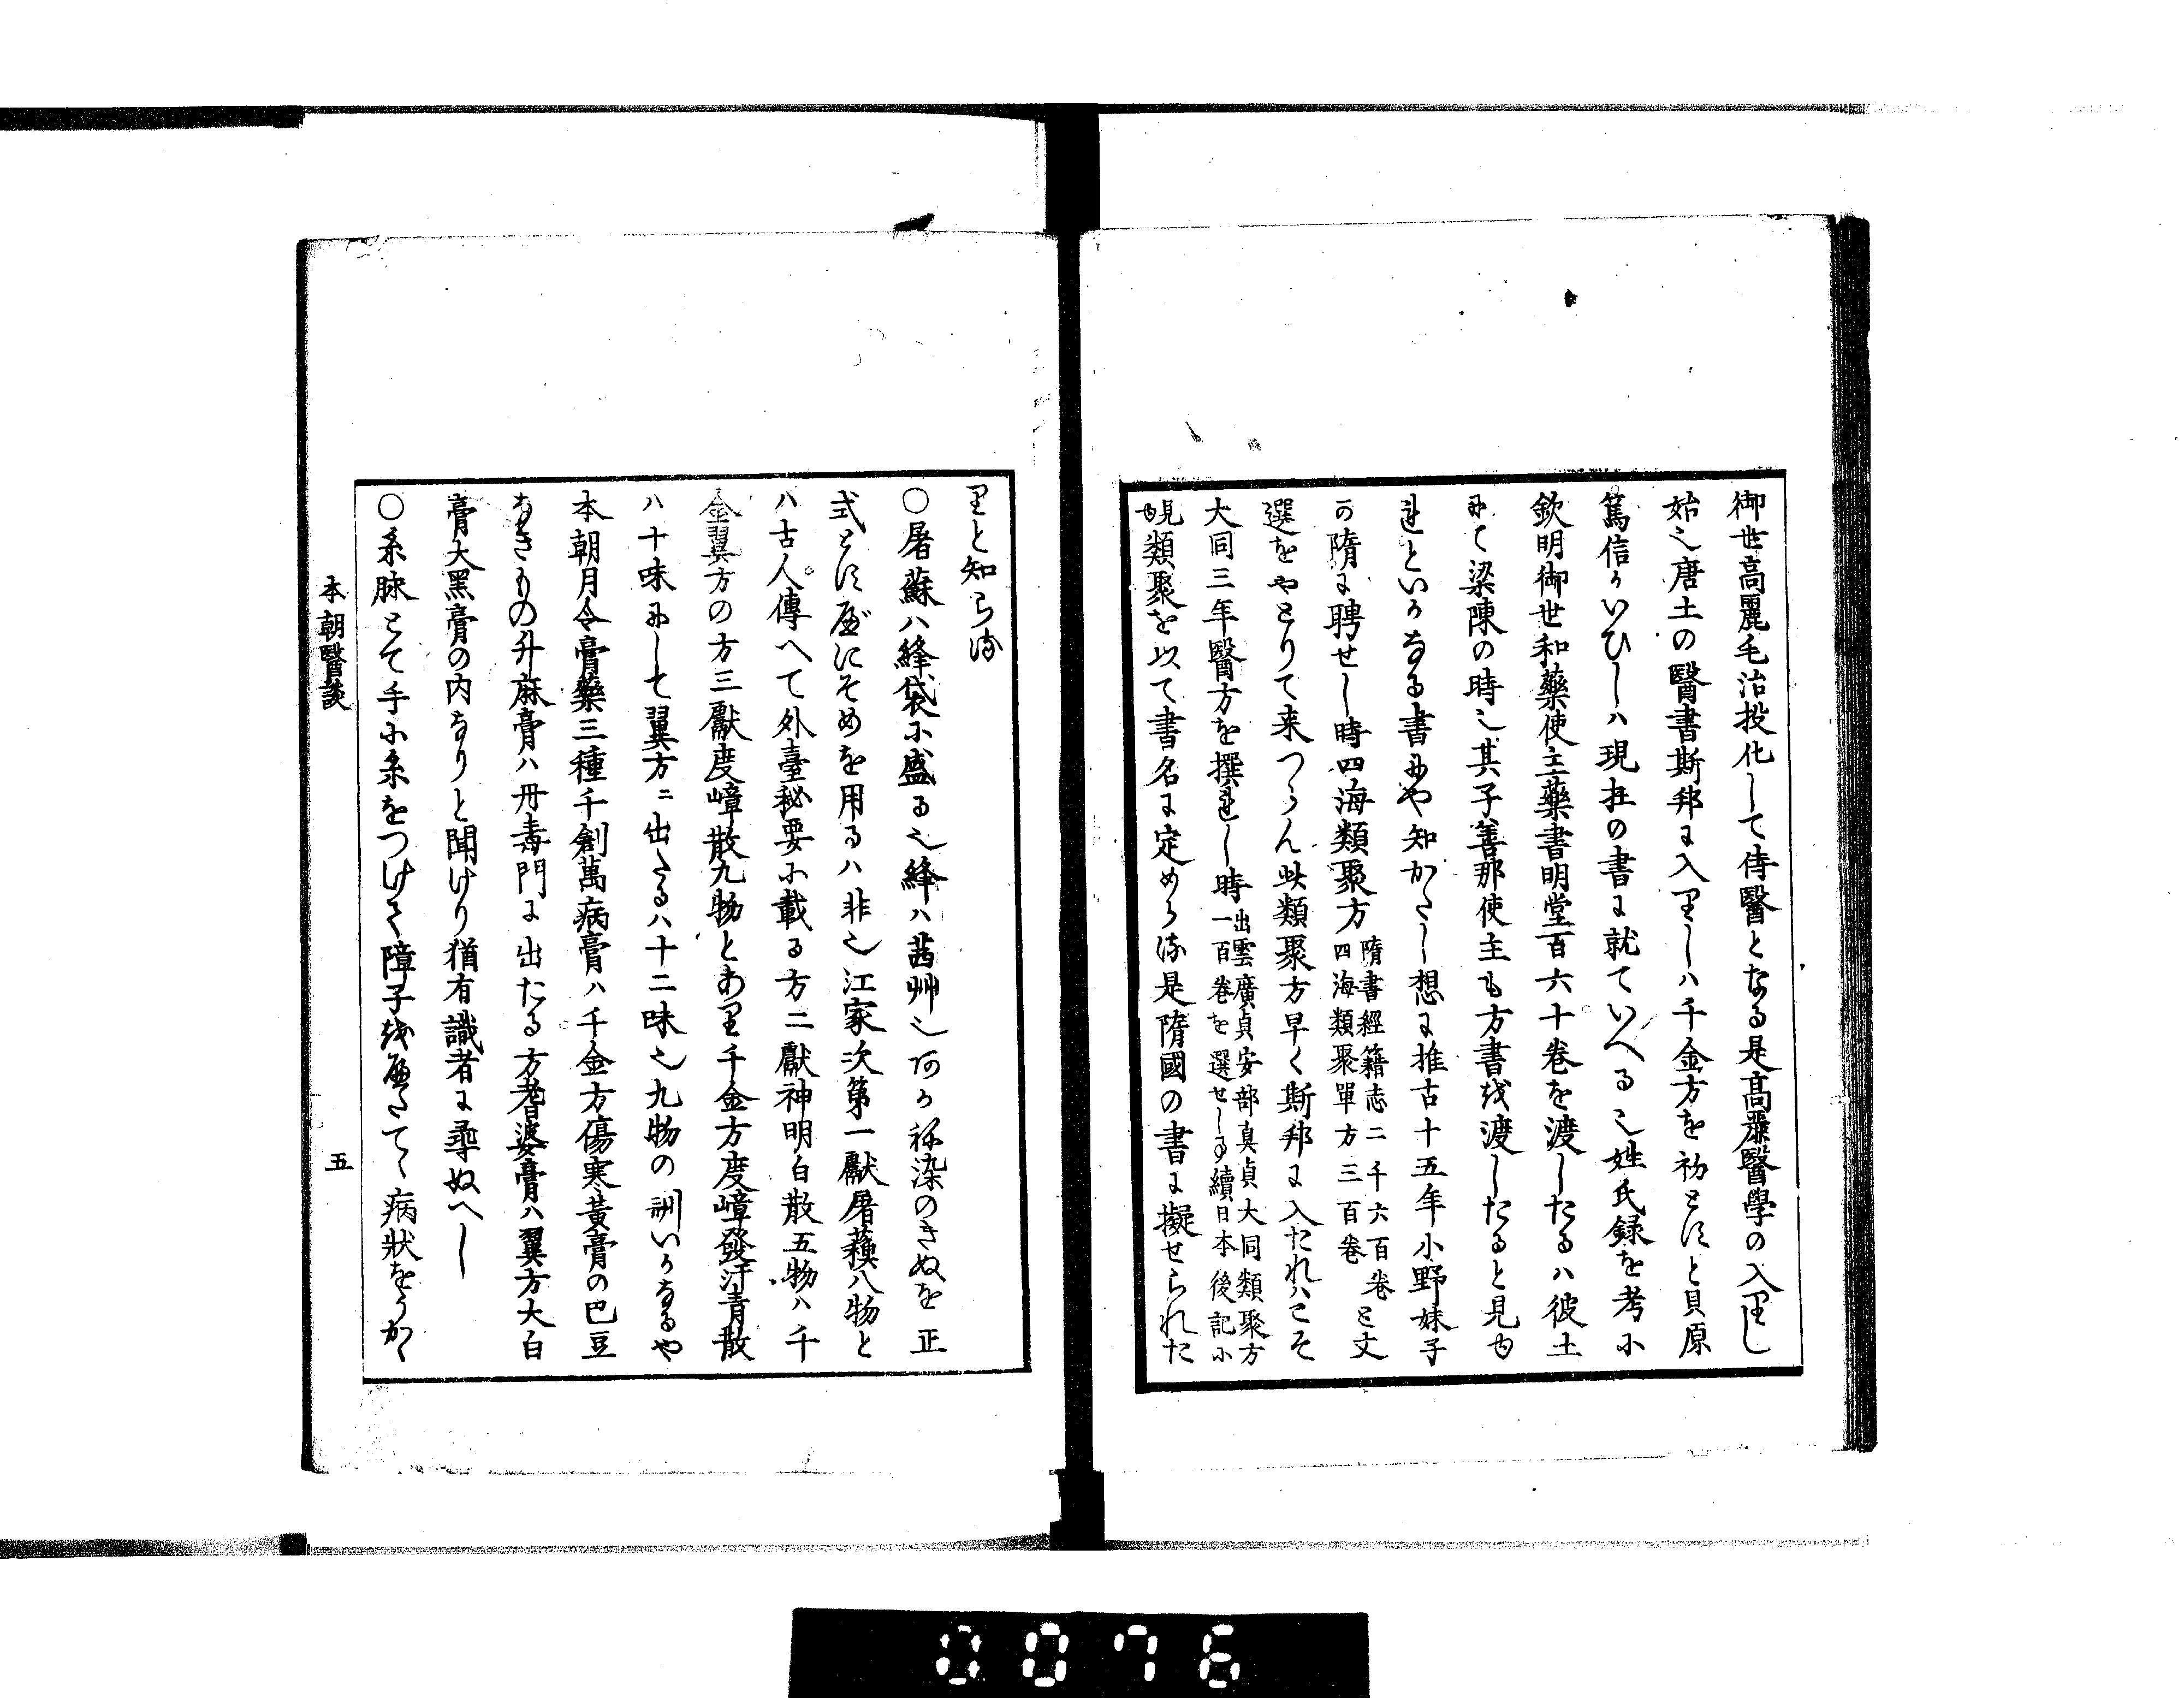 御世高麗毛治投化して侍醫となる是高麗醫學の入りし
始也唐土の醫書斯邦に入りしハ千金方を初とすと貝原
篤信かいひしハ現在の書に就ていへる也姓氏録を考ふ
欽明御世和藥使主藥書明堂百六十巻を渡したるハ彼土
にて梁陳の時也其子善那使主も方書を渡したると見ゆ
れといかなる書にや知かたし想に推古十五年小野妹子
の隋に聘せし時四海類聚方
隋書經籍志二千六百巻
四海類聚單方三百巻
と丈
選をやとりて来つらん此類聚方早く斯邦に入たれハこそ
大同三年醫方を撰れし時
出雲廣貞安部真貞大同類聚方
一百巻を選せしる續日本後記に
見ゆ
類聚を以て書名に定めらる是隋國の書に擬せられた
りと知らる
○屠蘇ハ絳袋に盛る也絳ハ茜艸也阿かね染のきぬを正
式とすべにそめを用るハ非也江家次第一獻屠蘓八物と
ハ古人傳へて外臺秘要に載る方二獻神明白散五物ハ千
金翼方の方三獻度嶂散九物とあり千金方度嶂發汗青散
ハ十味にして翼方ニ出たるハ十二味也九物の訓いかなるや
本朝月令膏藥三種千創萬病膏ハ千金方傷寒黄膏の巴豆
なきもの升麻膏ハ丹毒門に出たる方耆婆膏ハ翼方大白
膏大黑膏の内なりと聞けり猶有識者に尋ぬへし
○糸脉とて手に糸をつけて障子をへたてゝ病狀をうかゝ
本朝醫談
五
0076